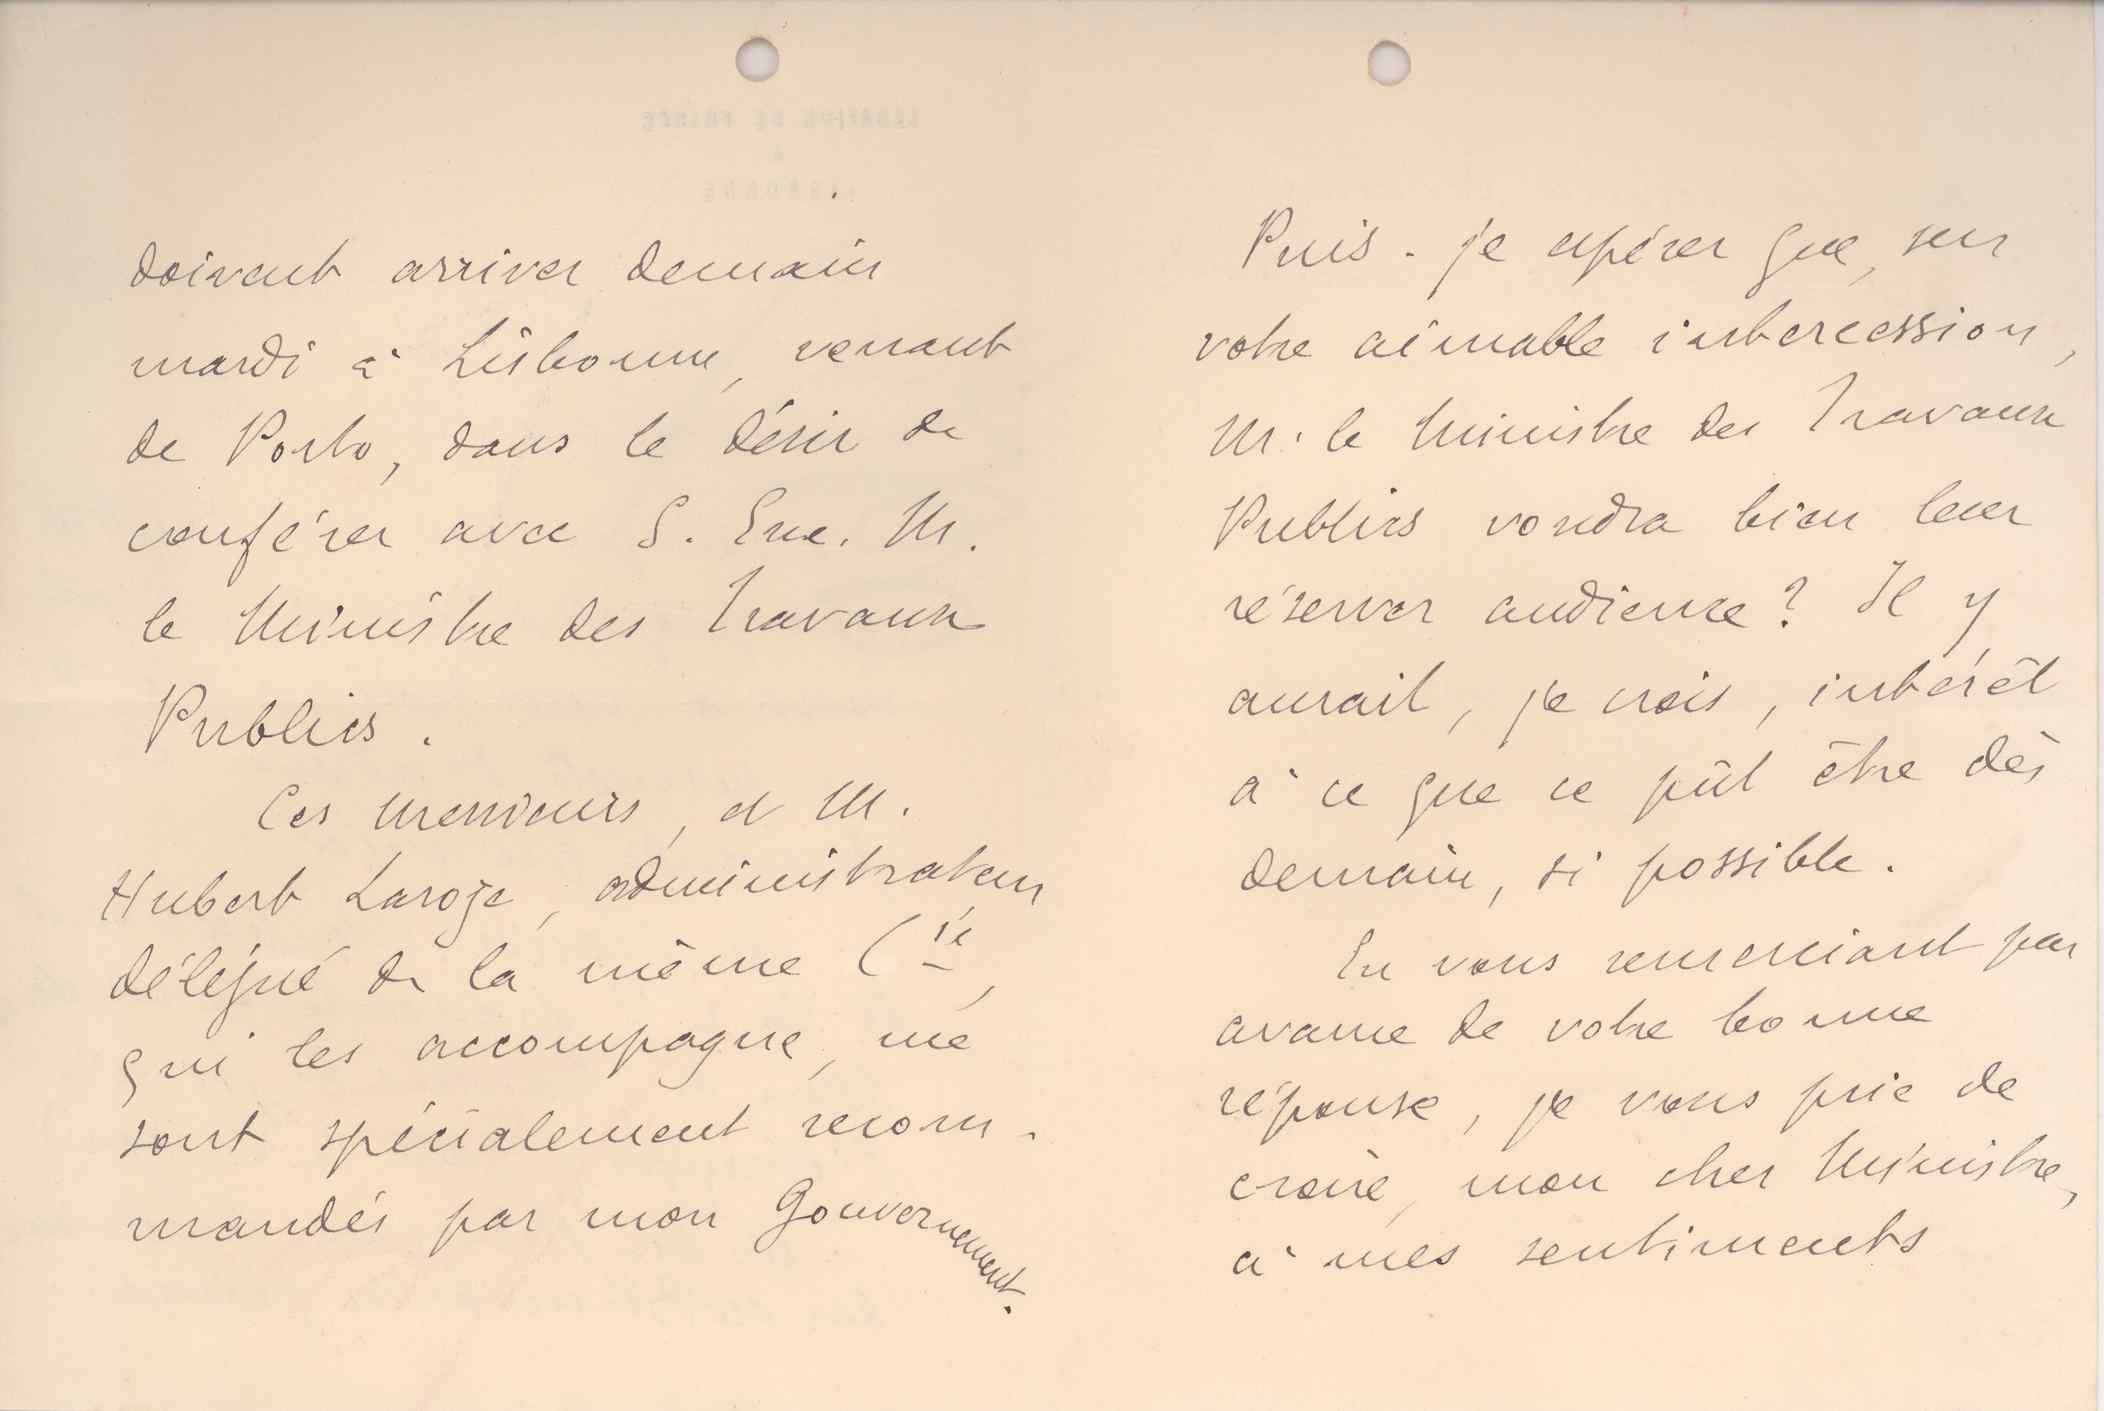 doivent arriver demain
mardi à Lisbonne, venant
de Porto, dans le désir de
conférer avec S. Exc. M.
le Ministre des Travaux
Publics.
Ces Messieurs, et M.
Hubert Laroze, administrateur
délégué de la même Cie,
qui les accompagne, me
sont spécialement recom-
mandés par mon Gouvernement.
Puis-je espérer que, sur
votre aimable intercession,
M. le Ministre des Travaux
Publics voudra bien leur
réserver audience? Il y
aurait, je crois, intérêt
à ce que ce pût être dès
demain, si possible.
En vous remerciant par
avance de votre bonne
réponse, je vous prie de
croire, mon cher Ministre,
à mes sentiments